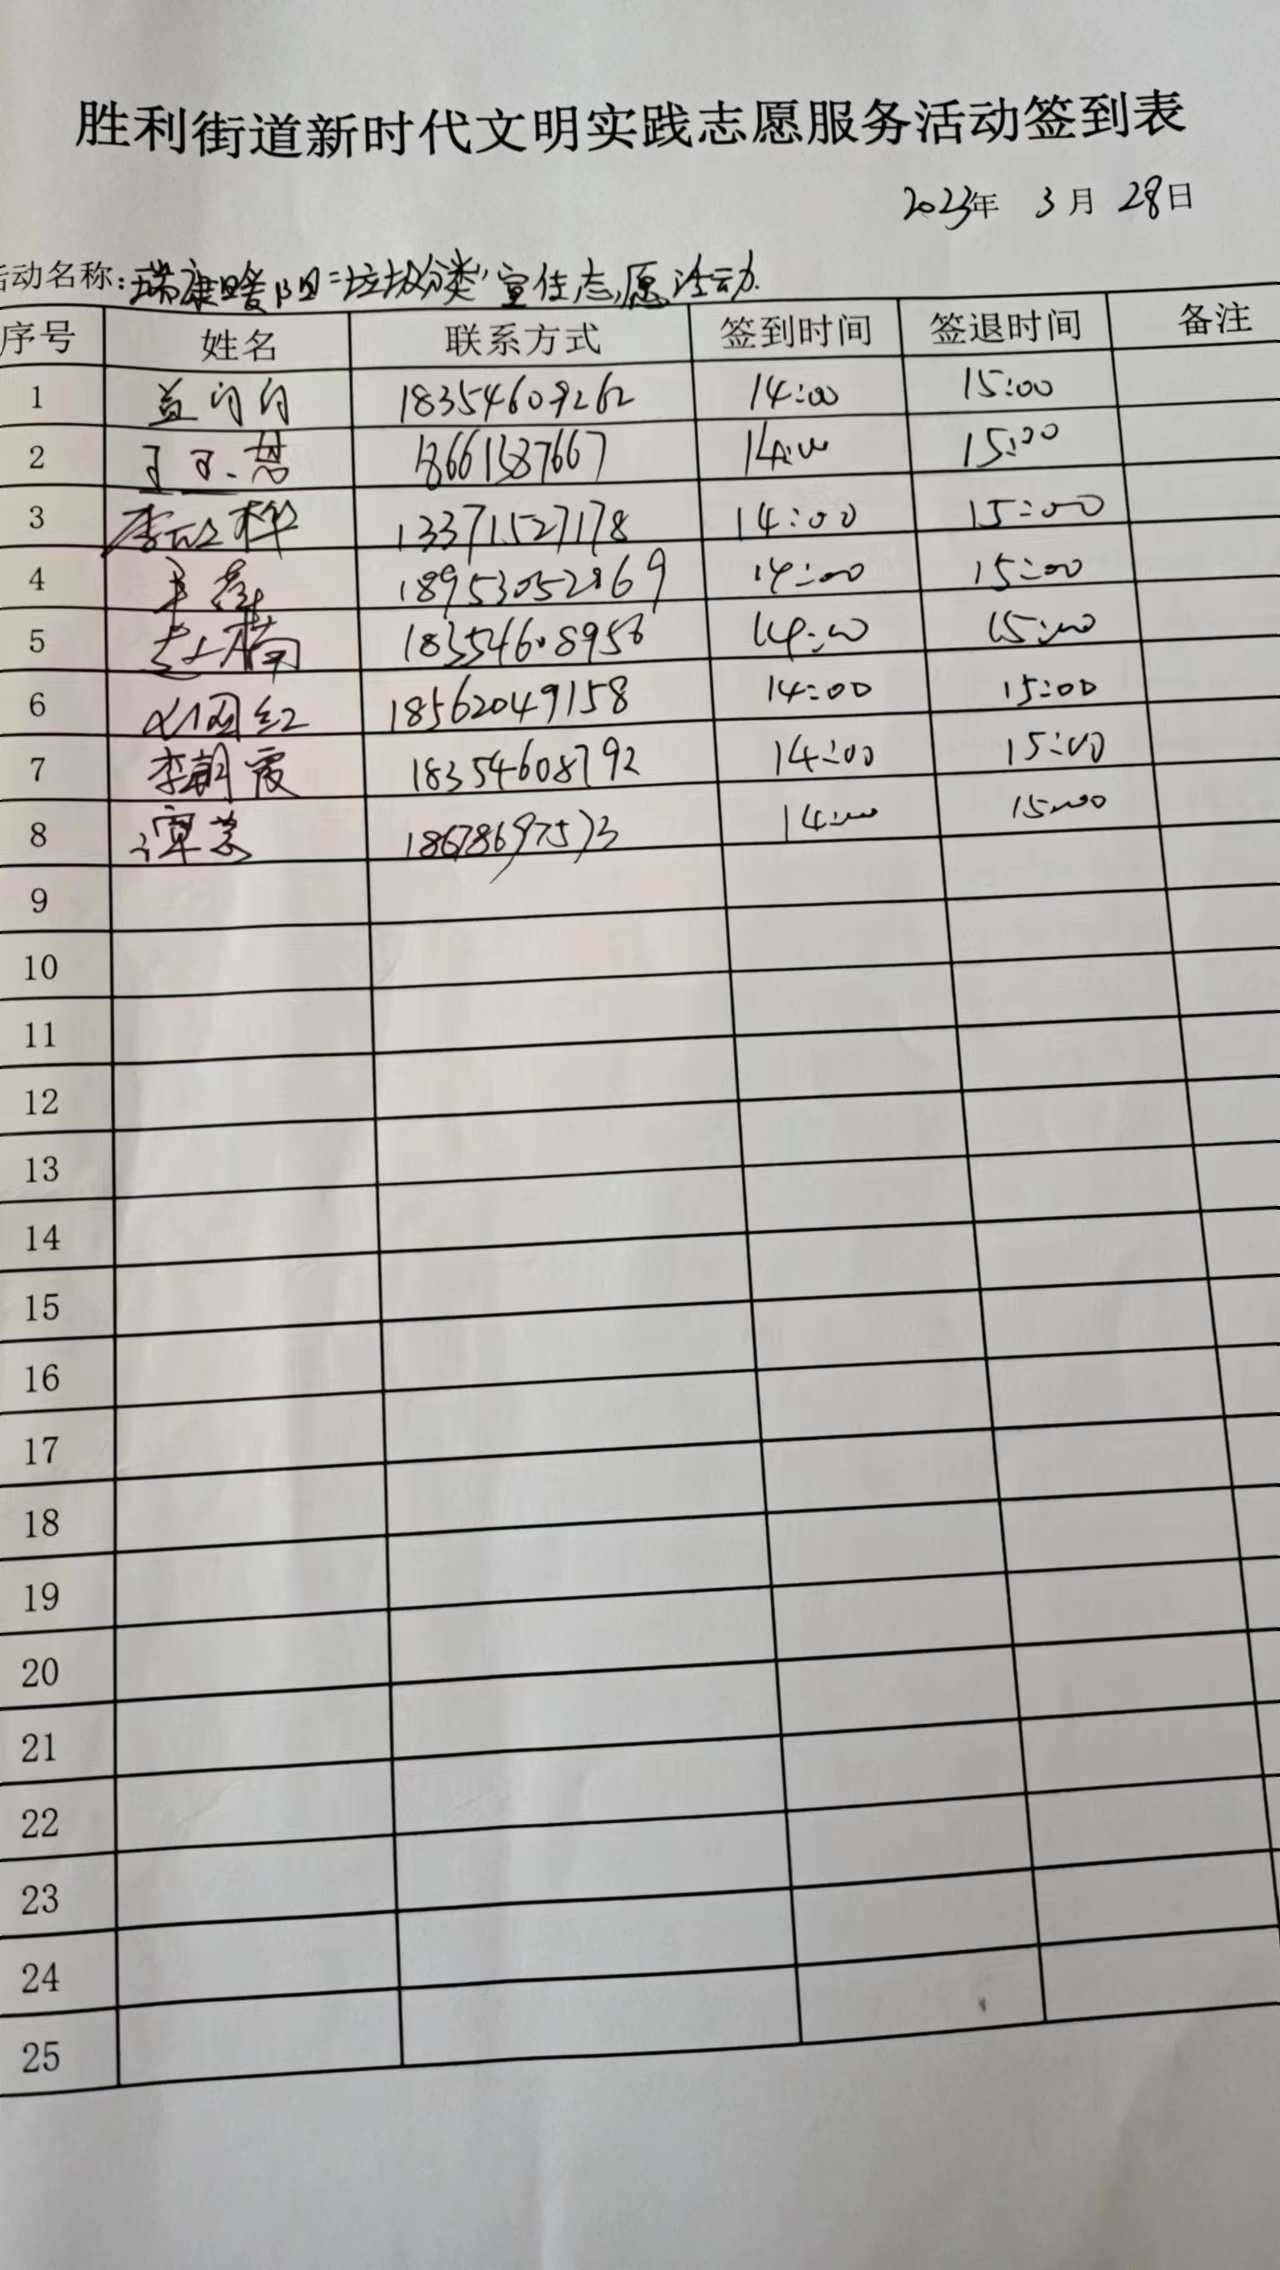 胜利街道新时代文明实践志愿服务活动签到表
2023年 3月 28日
活动名称:瑞康暖阳"垃圾分类"宣传志愿活动
序号 姓名 联系方式 签到时间 签退时间 备注
1 18354609262 14:00 15:00
2 18661387667 14:00 15:00
3 13371527178 14:00 15:00
4 14:00 15:00
5 赵楠 18354608956 14:00 15:00
6 18562049158 14:00 15:00
7 李朝霞 18354608792 14:00 15:00
8 谭慧 18678697573 14:00 15:00
9
10
11
12
13
14
15
16
17
18
19
20
21
22
23
24
25